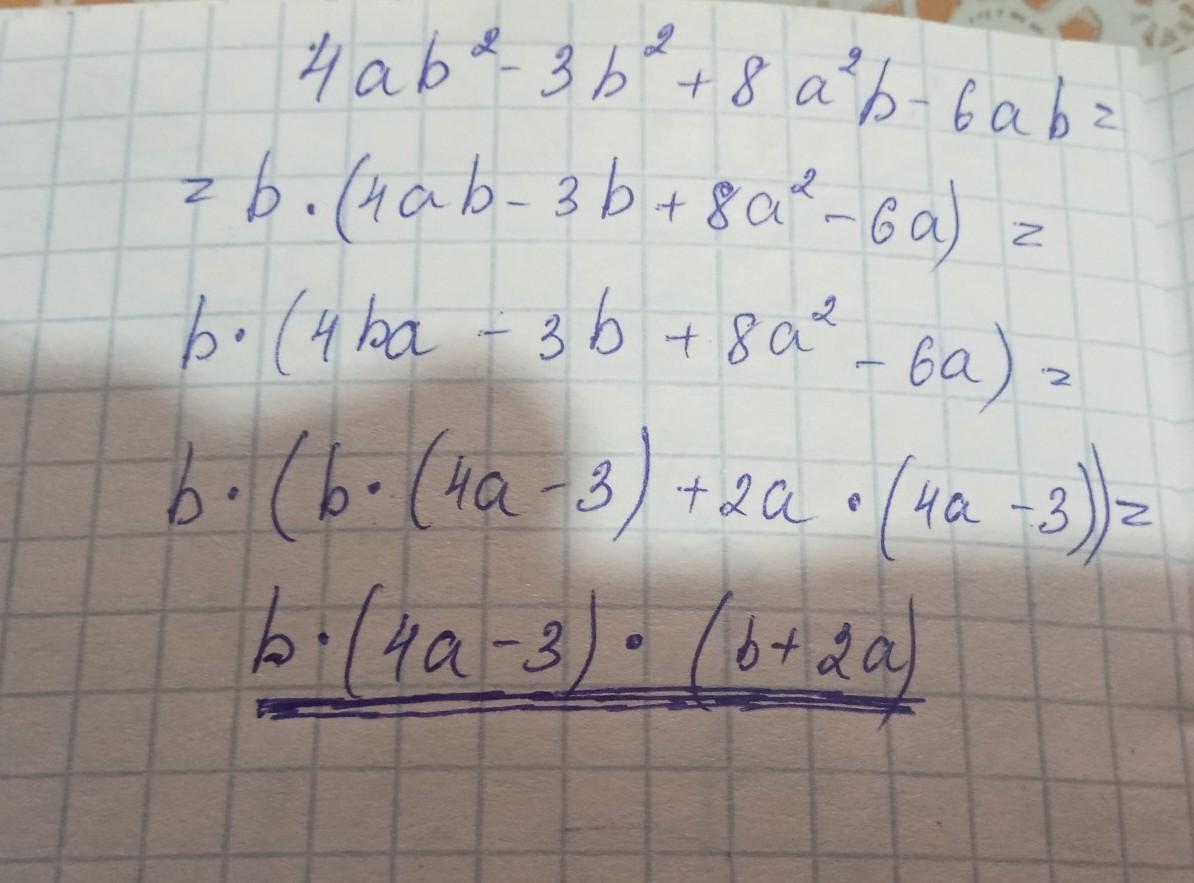 4ab² - 3b² + 8a²b - 6ab =
= b · (4ab - 3b + 8a² - 6a) =
b · (4ba - 3b + 8a² - 6a) =
b · (b · (4a - 3) + 2a · (4a - 3)) =
b · (4a - 3) · (b + 2a)